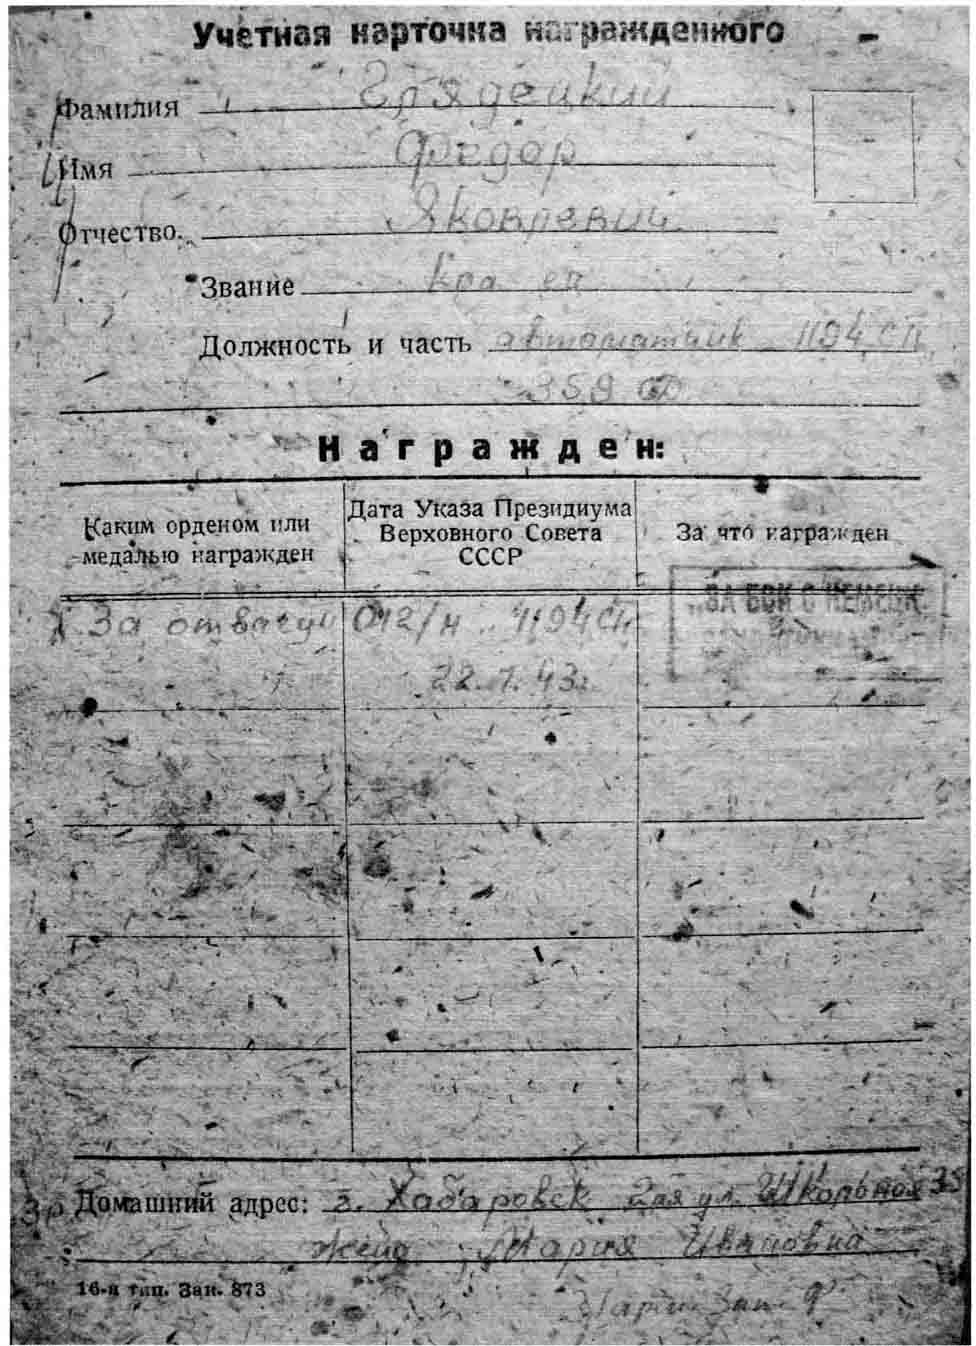 Учетная карточка награжденного
Фамилия Грядецкий
Имя Федор
Отчество. Яковлевич
Звание кра ец
Должность и часть автоматчик 1194 СП
359 СД
Награжден:
Каким орденом или медалью награжден
Дата Указа Президиума Верховного Совета СССР
За что награжден
За отвагу 012/н 1194 СП
22.1.43г.
„ЗА БОИ С НЕМЕЦК.
Домашний адрес: г. Хабаровск 2ая ул. Школьная 35
жена Мария Ивановна
16-я тип. Зак. 873